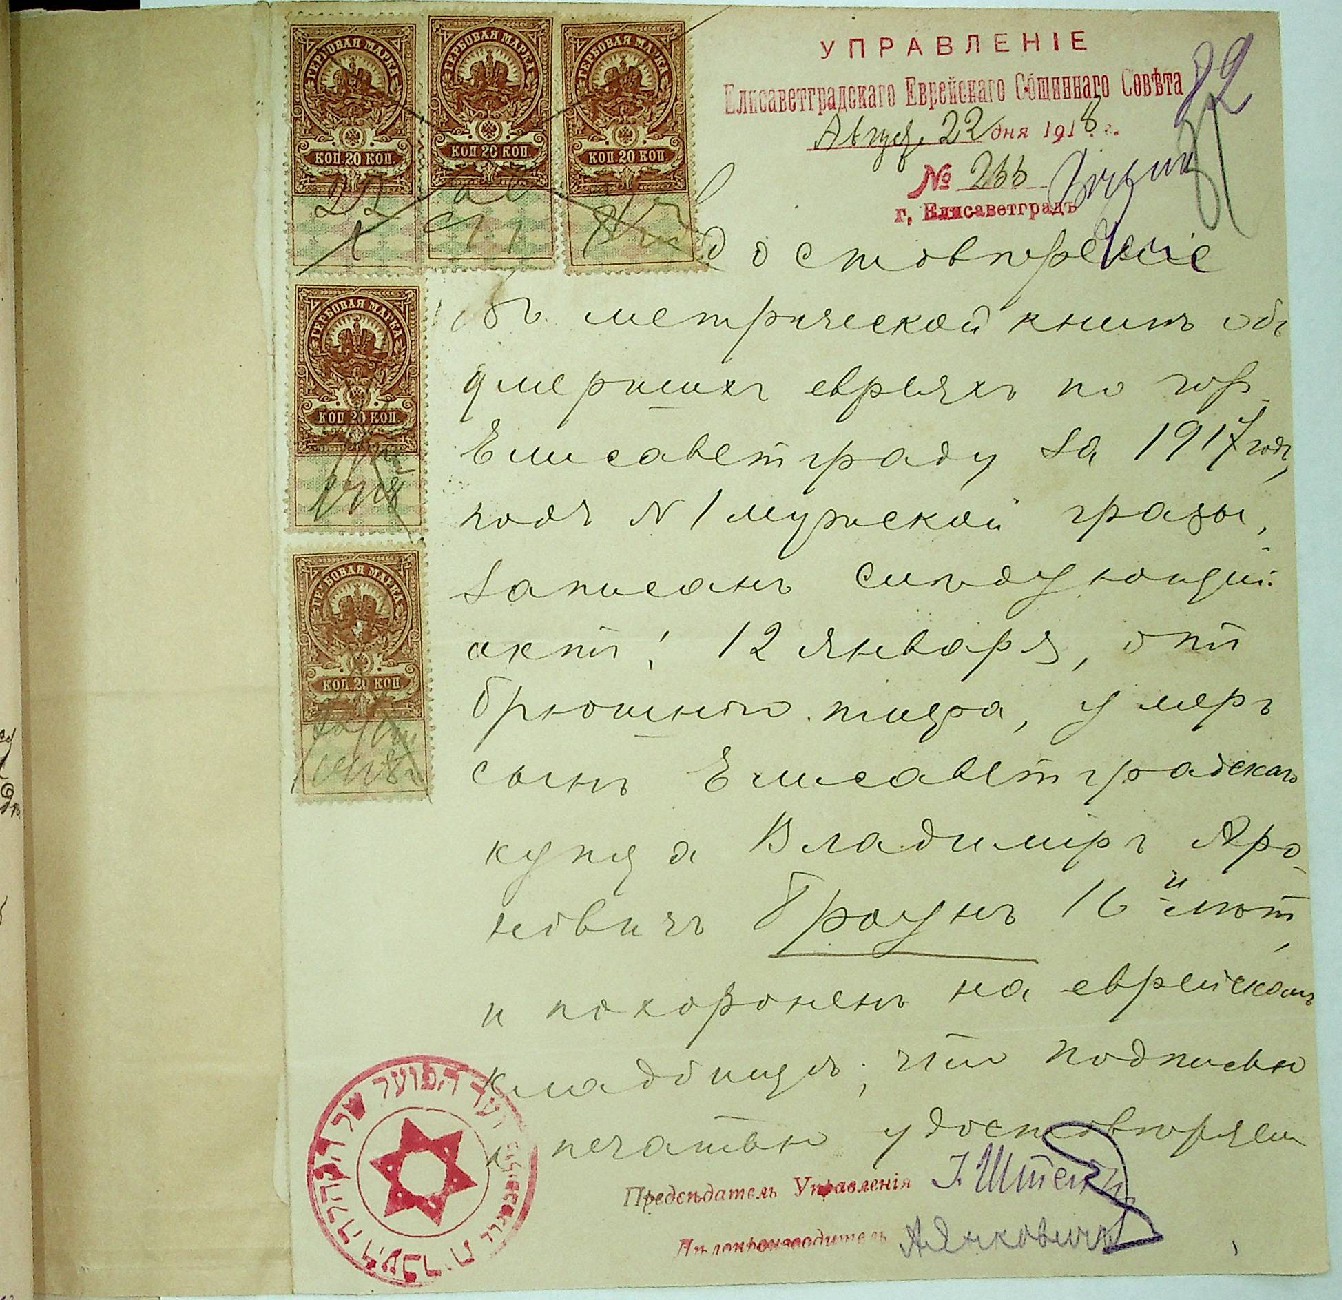 ГЕРБОВАЯ МАРКА
КОП 20 КОП
22
1
ГЕРБОВАЯ МАРКА
КОП 20 КОП
ГЕРБОВАЯ МАРКА
КОП 20 КОП
ГЕРБОВАЯ МАРКА
КОП 20 КОП
ГЕРБОВАЯ МАРКА
КОП 20 КОП
УПРАВЛЕНІЕ
Елисаветградскаго Еврейскаго Общиннаго Совѣта
82
Август 22 дня 1918 г.
№ 266
г. Елисаветградъ
Удостовѣреніе
Въ метрической книгѣ объ
умершихъ евреяхъ по гор.
Елисаветграду за 1917 годъ,
подъ N 1 мужской графы,
записанъ слѣдующій
актъ: 12 января, отъ
брюшного тифа, умеръ
сынъ Елисаветградскаго
купца Владиміръ Аро-
новичъ Браунъ 16 и лѣтъ,
и похороненъ на еврейскомъ
кладбищѣ, что подписью
и печатью удостовѣряем
Предсѣдатель Управленія
Дѣлопроизводитель А Янковичъ
ועד הפועל של הקהלה העברית